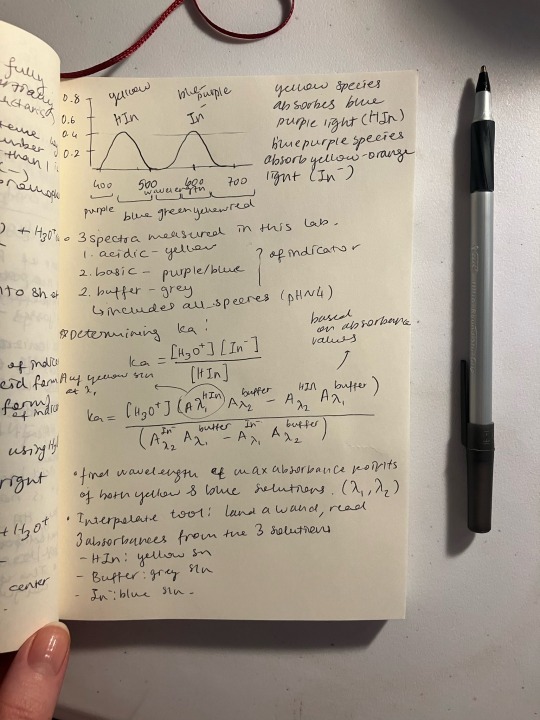 fully
number
than 1
(-)
) + H3O+
of indica
acid form
form)
of indic
using H
right
+ H3O+
center
yellow
blue-purple
0.8
0.6
0.4
0.2
HIn
In-
400 500 600 700
wavelength
purple blue green yellow red
yellow species
absorbes blue
purple light (HIn)
bluepurple species
absorb yellow-orange
light (In-)
• 3 spectra measured in this lab.
1. acidic - yellow
2. basic - purple/blue
2. buffer - grey
of indicator
↳ includes all species (pH~4)
Determining ka:
based
on absorbance
values
ka = [H3O+] [In-] / [HIn]
A of yellow soln
at λ1
ka = [H3O+] (Aλ1^HIn Aλ2^buffer - Aλ2^HIn Aλ1^buffer) / (Aλ2^In- Aλ1^buffer - Aλ1^In- Aλ2^buffer)
• final wavelength of max absorbance points
of both yellow & blue solutions. (λ1, λ2)
• Interpolate tool: land a wand, read
3 absorbances from the 3 solutions
- HIn: yellow sln
- Buffer: grey sln
- In-: blue sln.